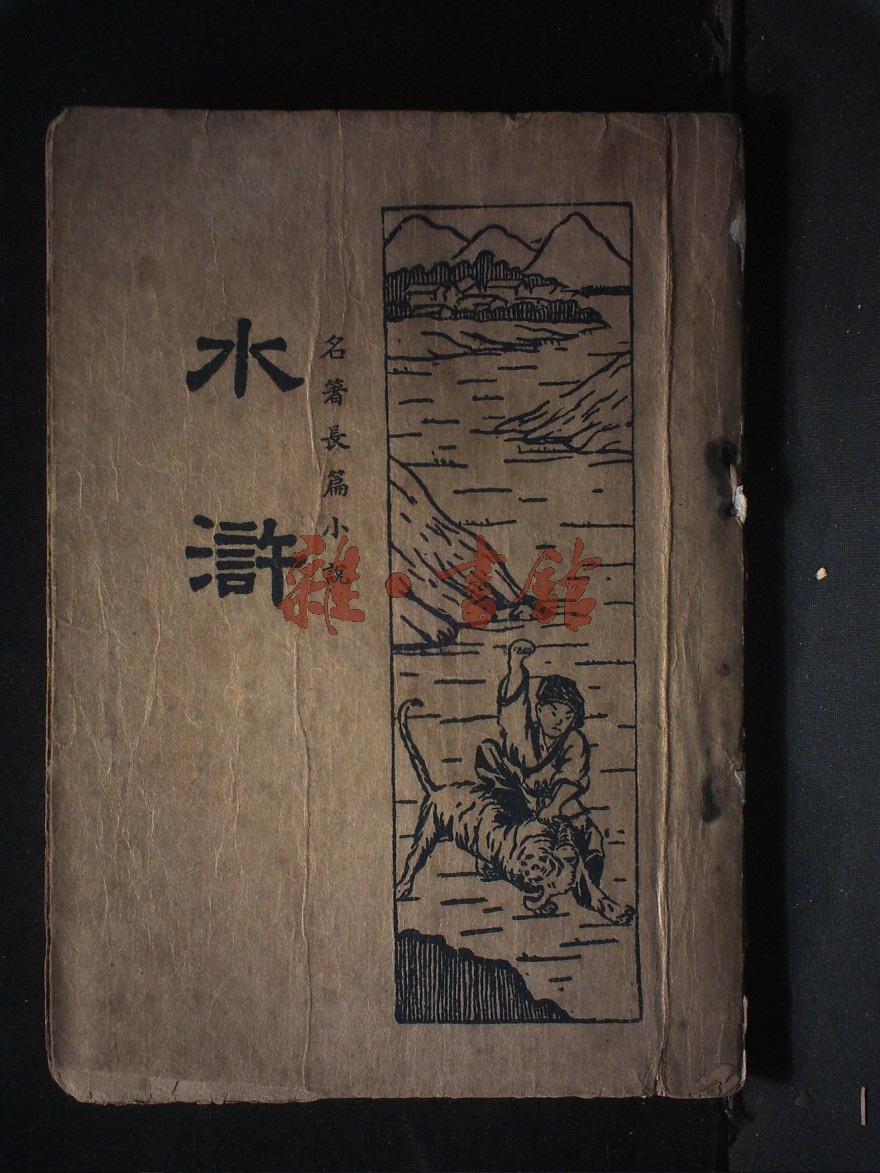 名著長篇小説
水滸
雜·書館